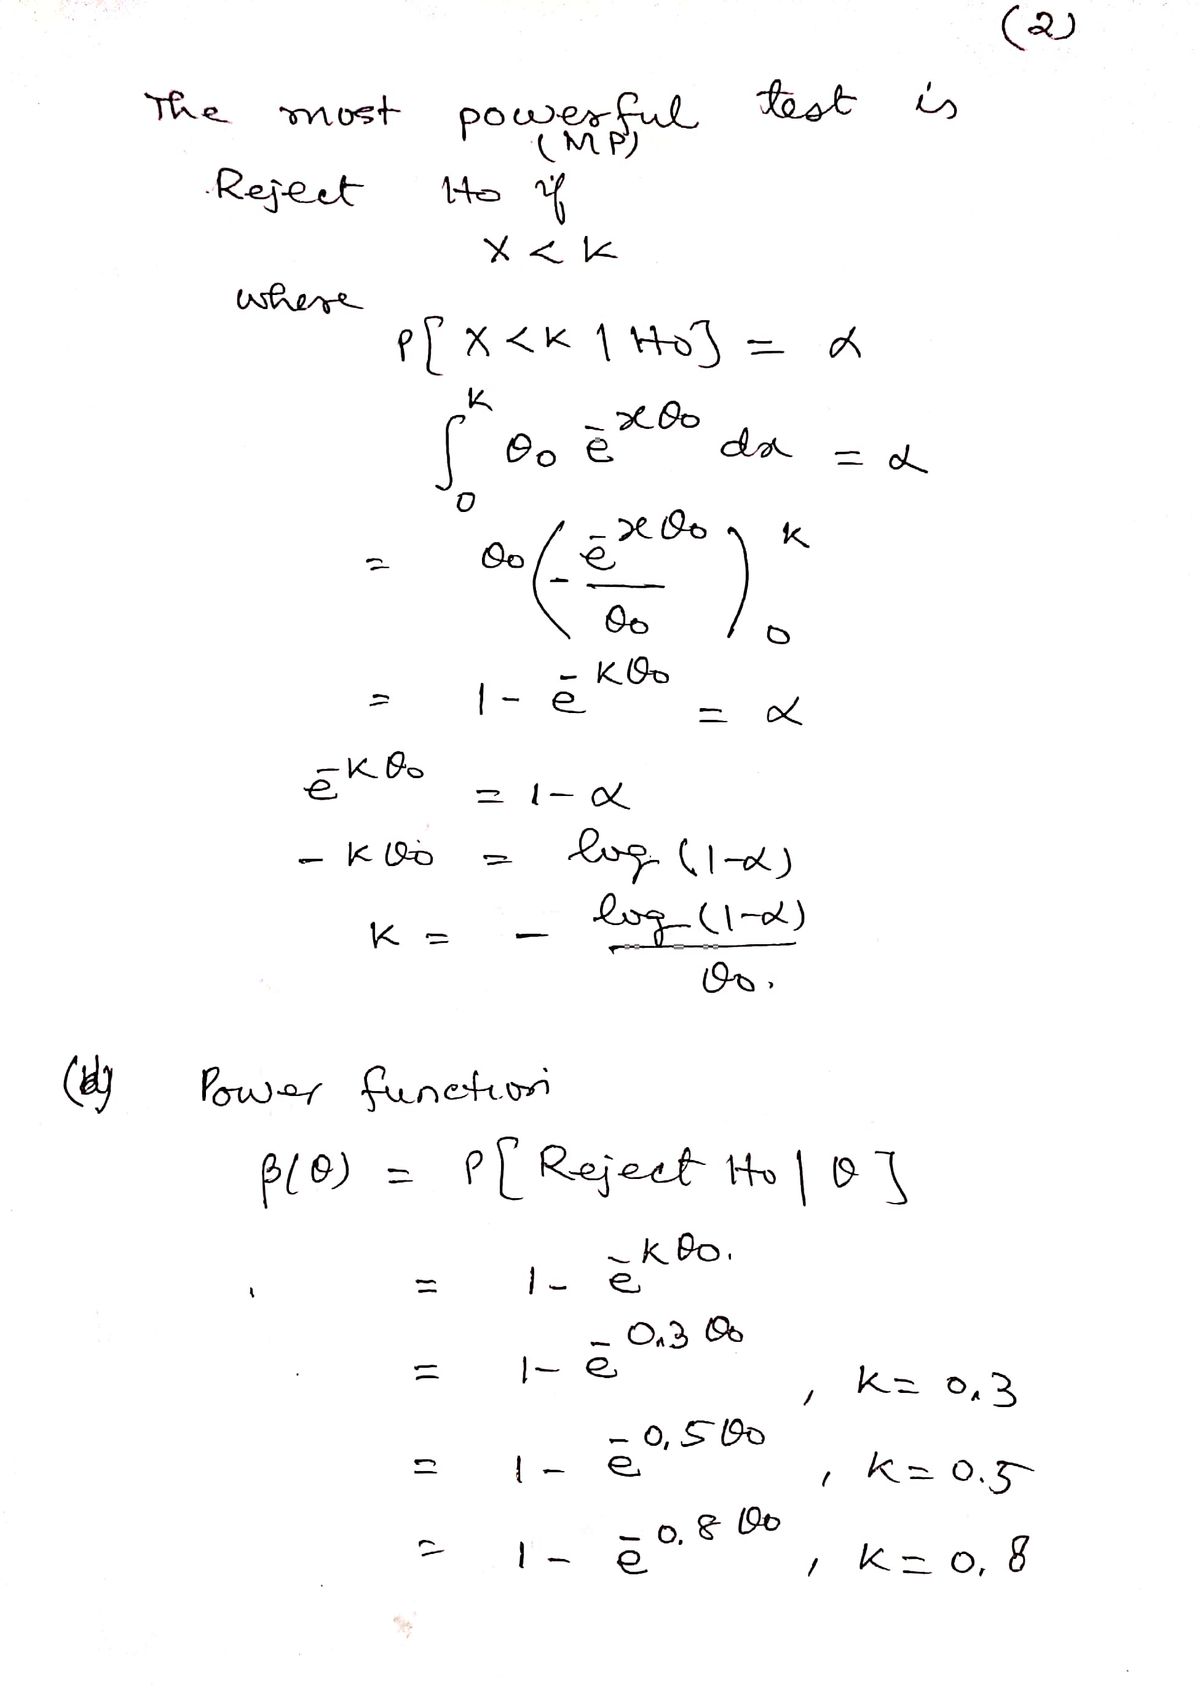 (2)
The most powerful test is
(MP)
Reject H0 if
X < K
where
P[ X < K | H0 ] = α
∫₀ᴷ θ0 e^{-xθ0} dx = α
= θ0 ( - e^{-xθ0} / θ0 )₀ᴷ
= 1 - e^{-Kθ0} = α
e^{-Kθ0} = 1 - α
- K θ0 = log (1-α)
K = - log (1-α) / θ0.
(d) Power function
β(θ) = P[ Reject H0 | θ ]
= 1 - e^{-Kθ0}.
= 1 - e^{-0.3 θ0} , K = 0.3
= 1 - e^{-0.5 θ0} , K = 0.5
= 1 - e^{-0.8 θ0} , K = 0.8